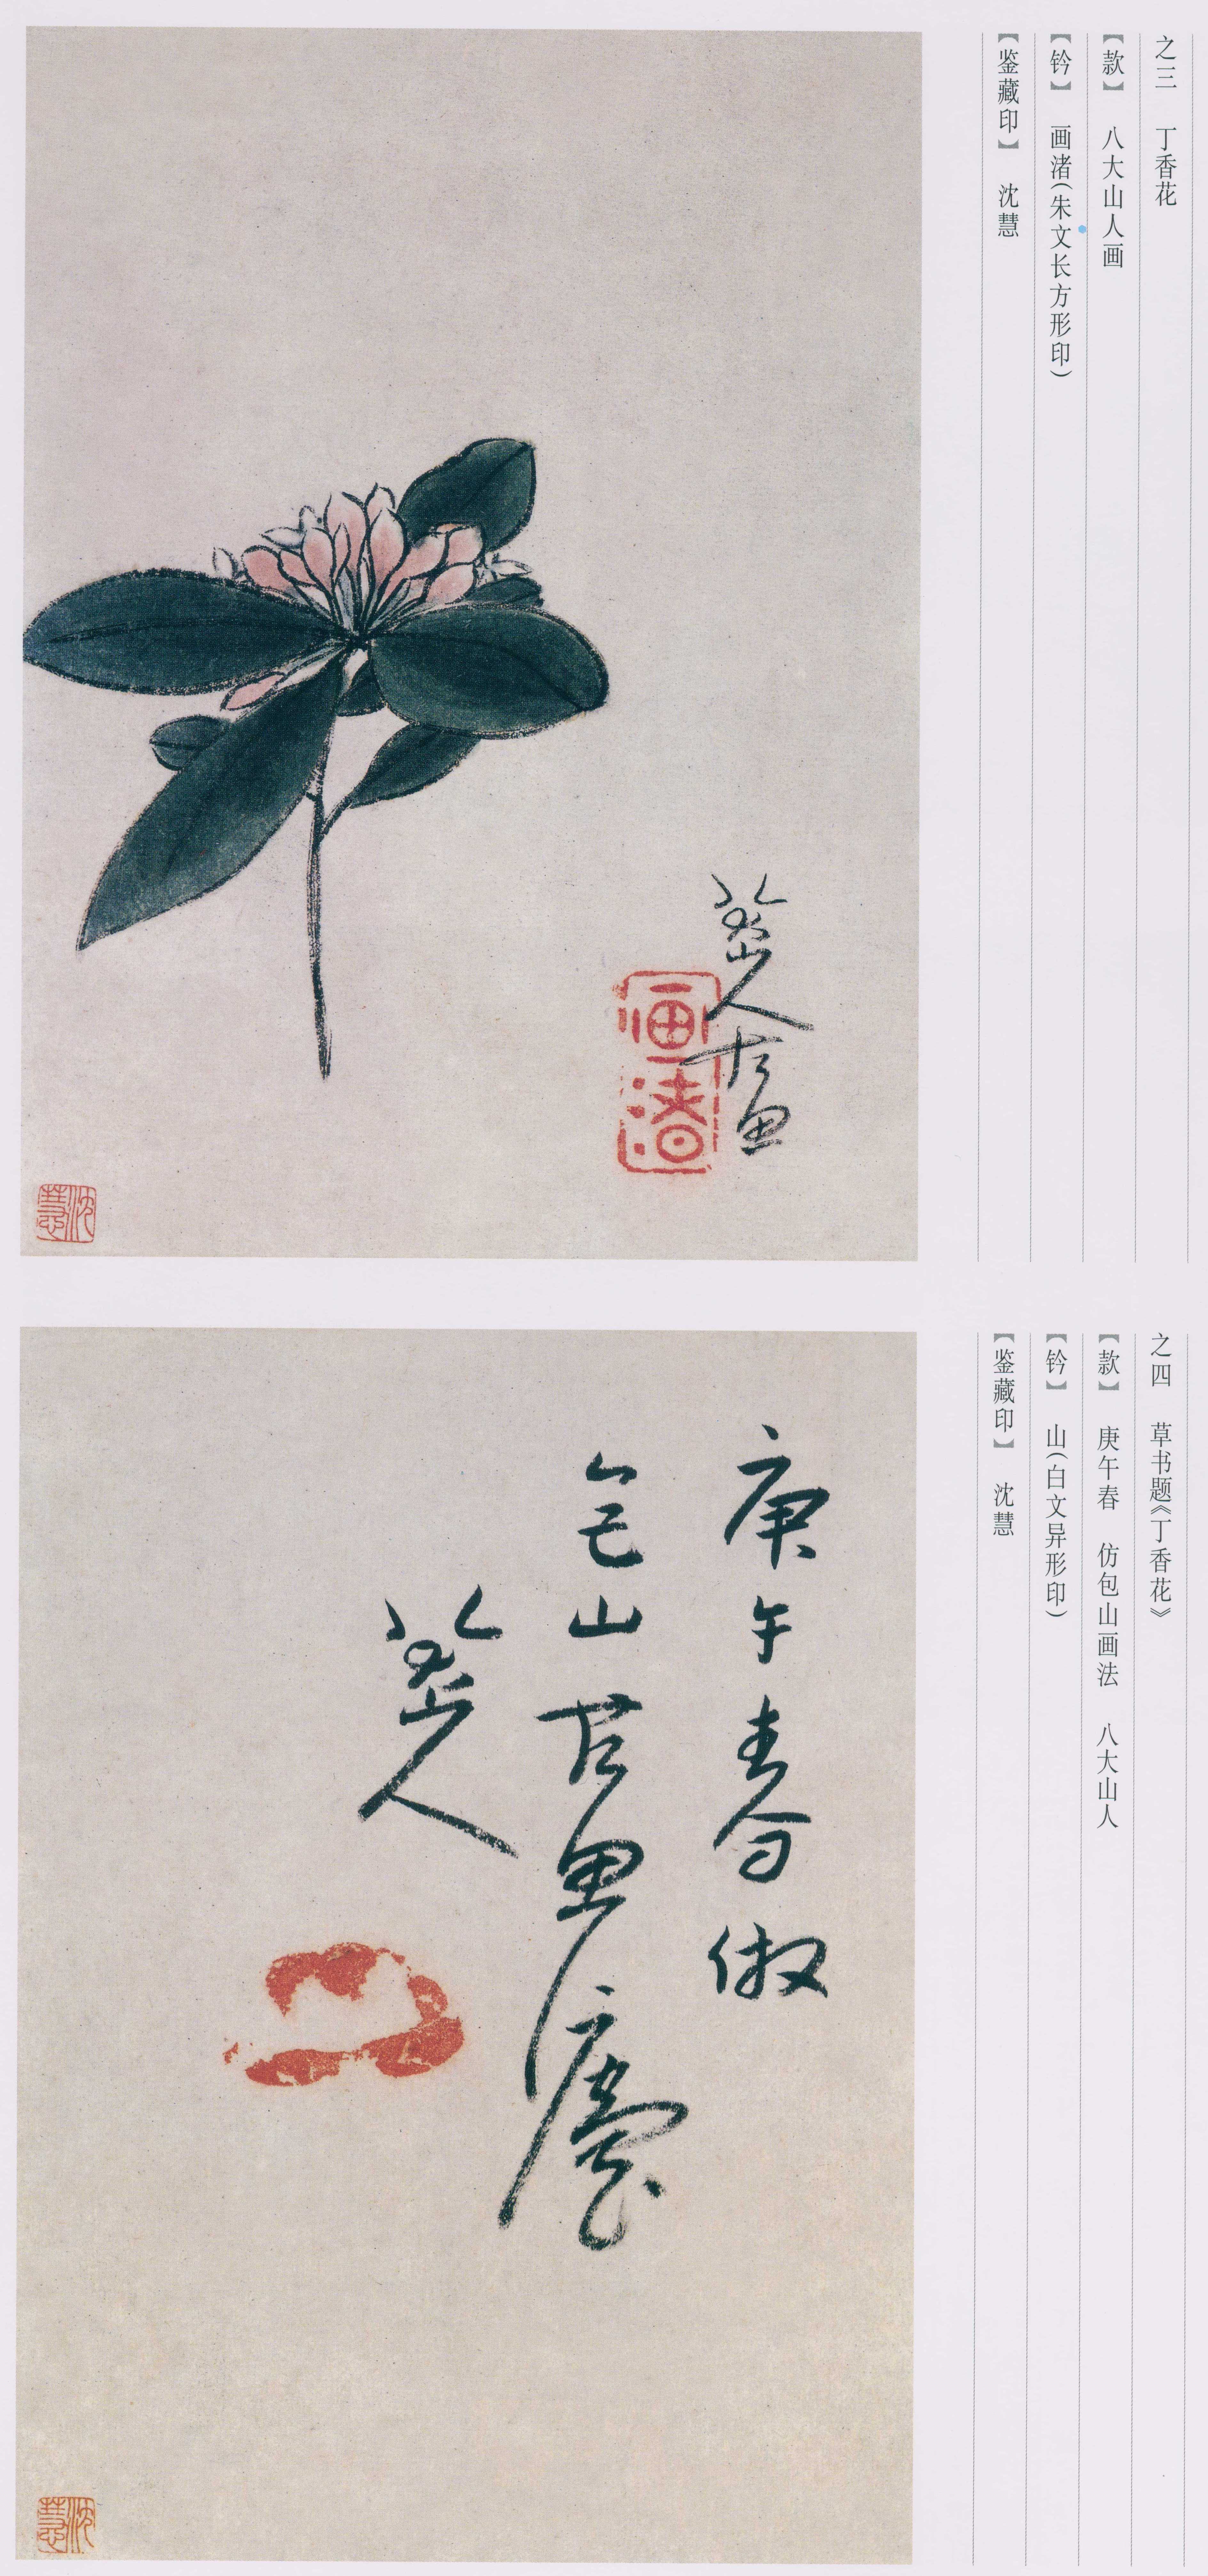 之三 丁香花
【款】 八大山人画
【钤】 画渚(朱文长方形印)
【鉴藏印】 沈慧
八大山人
画
画渚
沈慧
之四 草书题《丁香花》
【款】 庚午春 仿包山画法 八大山人
【钤】 山(白文异形印)
【鉴藏印】 沈慧
庚午春倣
包山画法
八大山人
沈慧